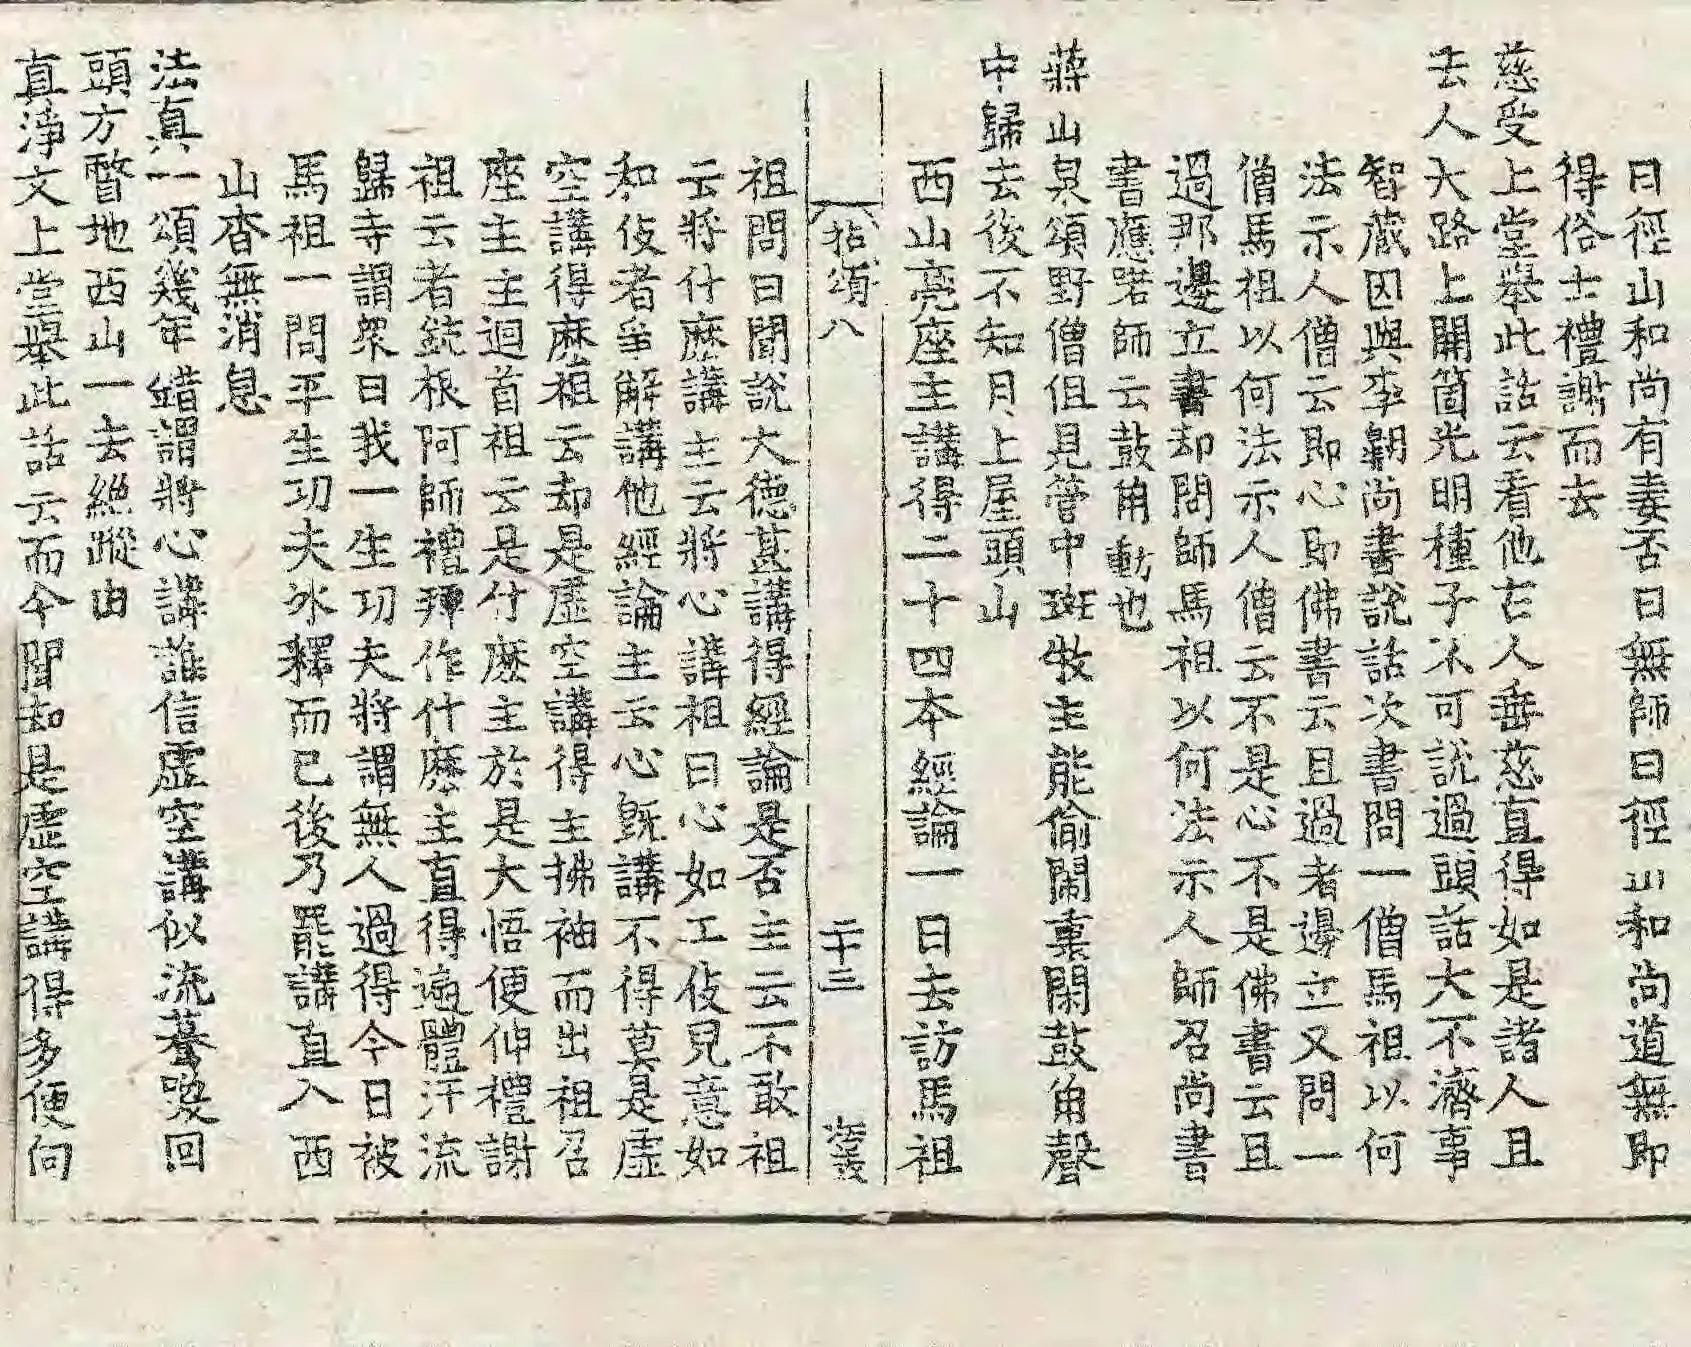 曰徑山和尚有妻否曰無師曰徑山和尚道無即
得俗士禮謝而去
慈受上堂舉此話云看他古人垂慈直得如是諸人且
去人大路上開箇光明種子不可說過頭話大不濟事
智藏因與李翱尚書說話次書問一僧馬祖以何
法示人僧云即心即佛書云且過者邊立又問一
僧馬祖以何法示人僧云不是心不是佛書云且
過那邊立書却問師馬祖以何法示人師召尚書
書應喏師云鼓角動也
蔣山泉頌野僧但見管中斑牧主能偷鬧裏閑鼓角聲
中歸去後不知月上屋頭山
西山亮座主講得二十四本經論一日去訪馬祖
拈頌八
二十三
祖問曰聞說大德甚講得經論是否主云不敢祖
云將什麽講主云將心講祖曰心如工伎兒意如
和伎者爭解講他經論主云心旣講不得莫是虛
空講得麽祖云却是虛空講得主拂袖而出祖召
座主主迴首祖云是什麽主於是大悟便伸禮謝
祖云者鈍根阿師禮拜作什麽主直得遍體汗流
歸寺謂衆曰我一生功夫將謂無人過得今日被
馬祖一問平生功夫氷釋而已後乃罷講直入西
山杳無消息
法眞一頌幾年錯謂將心講誰信虛空講似流驀喚回
頭方瞥地西山一去絶蹤由
眞淨文上堂舉此話云而今聞却是虛空講得多便向